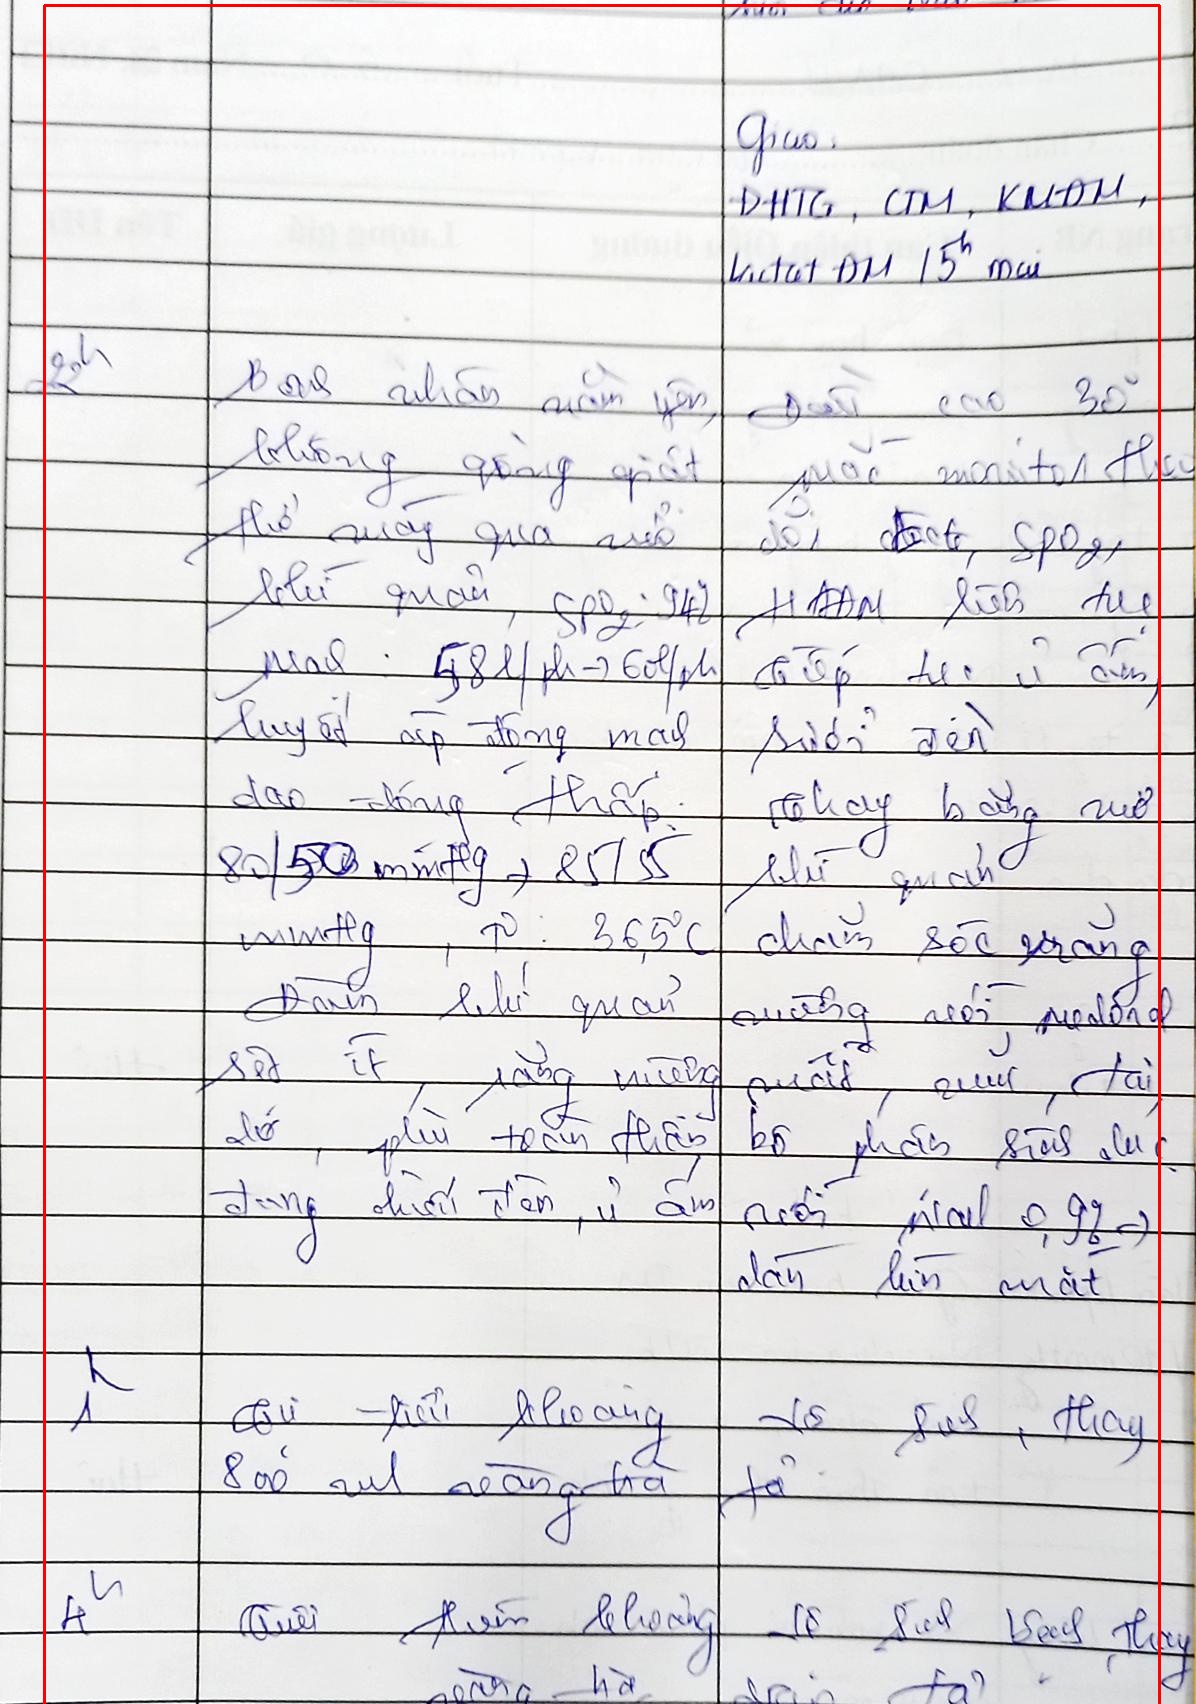 Giao:
ĐHTG, CTM, KMĐM,
Lactat ĐM 15h mai
22h
Bệnh nhân nằm yên,
không gồng giật
thở máy qua mở
khí quản, SpO2: 94%
mạch: 58l/ph → 60l/ph
huyết áp động mạch
dao động thấp:
80/50 mmHg → 85/55
mmHg, T°: 36,5°C
Đờm khí quản
sệt ít, răng miệng
dớ, phù toàn thân,
đang chiếu đèn, ủ ấm
Đầu cao 30°
mắc monitor theo
dõi, SpO2,
HAĐM liên tục
tiếp tục ủ ấm,
sưởi đèn
thay băng mở
khí quản
chăm sóc răng
miệng với
mắt, mũi, tai,
bộ phận sinh dục
với NaCl 0,9% →
dán kín mắt
1h
Đi tiểu khoảng
800 ml vàng trà
Vệ sinh, thay
tã
4h
khoảng
vàng trà
Vệ sinh sạch, thay
tã